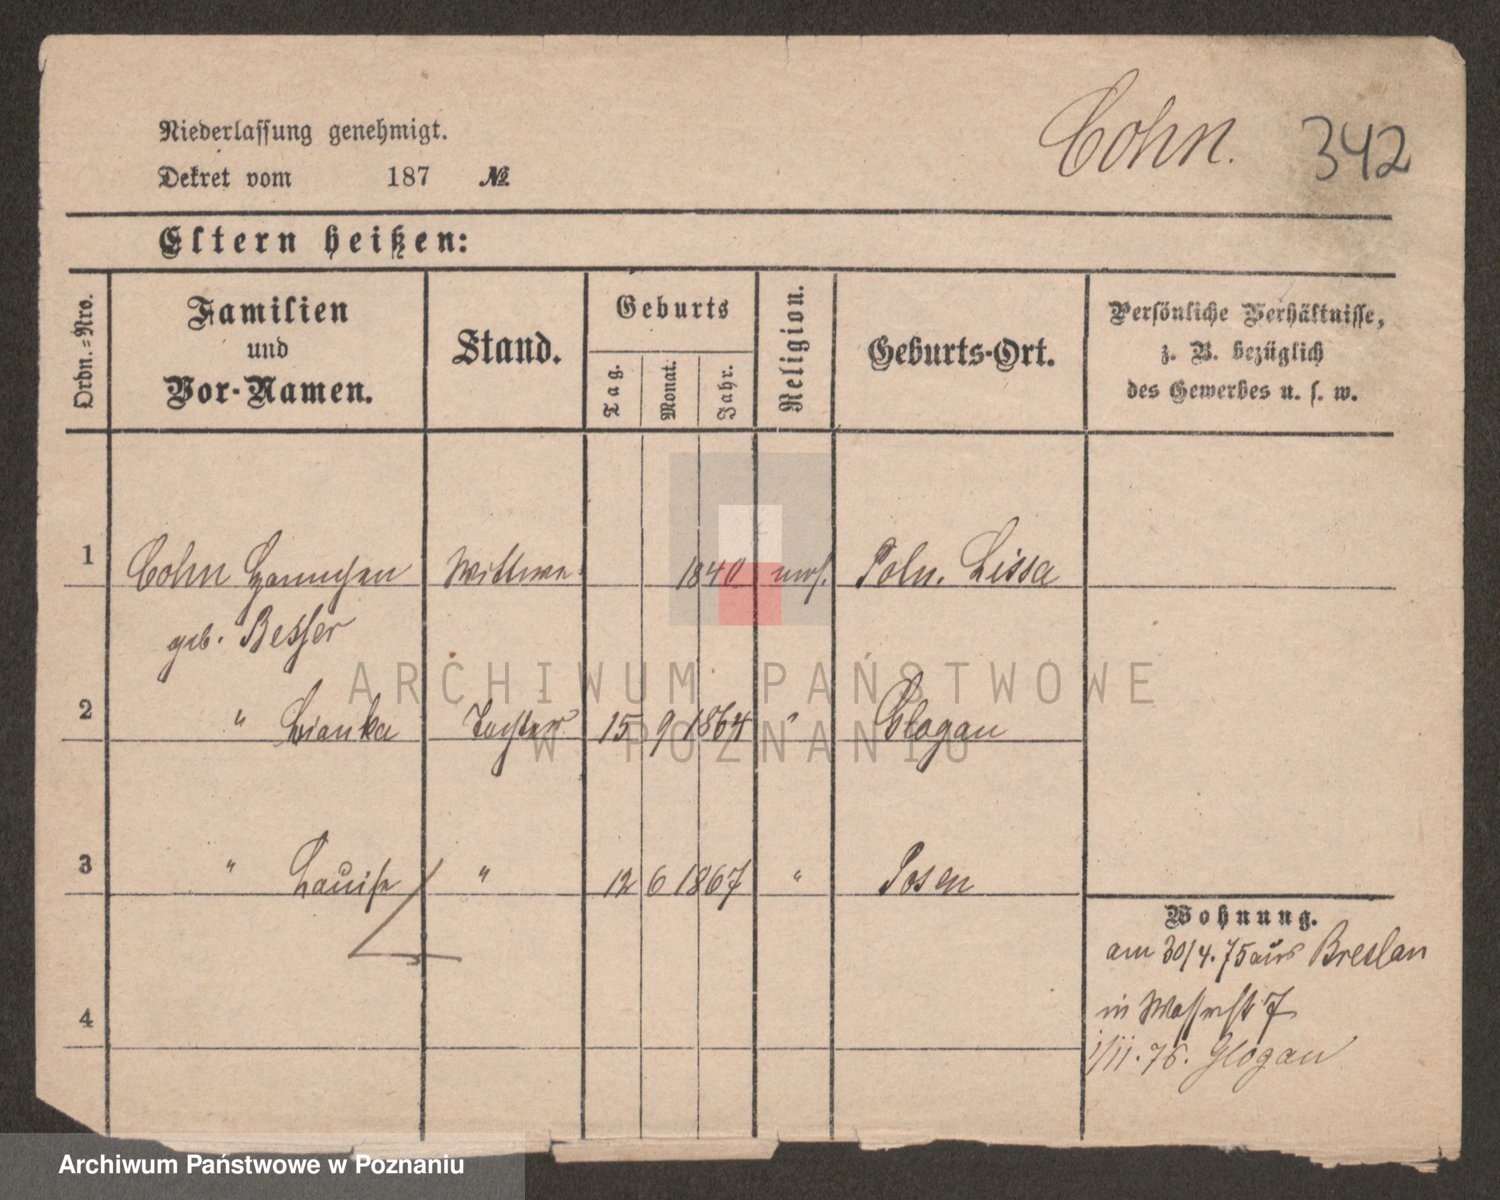 Niederlassung genehmigt.
Cohn. 342
Dekret vom 187 №
Eltern heißen:
Ordn.=Nro.
Familien
und
Vor-Namen.
Stand.
Geburts
Tag.
Monat.
Jahr.
Religion.
Geburts-Ort.
Persönliche Verhältnisse,
z. B. bezüglich
des Gewerbes u. s. w.
1 Cohn Hannchen Wittwe 1840 mos. Poln. Lissa
geb. Besser
2 " Bianka Tochter 15 9 1864 " Glogau
3 " Louise " 12 6 1867 " Posen
4
Wohnung.
am 30/4.75 aus Breslau
in Wasserstr 7
1/11.76. Glogau
ARCHIWUM PAŃSTWOWE
W POZNANIU
Archiwum Państwowe w Poznaniu